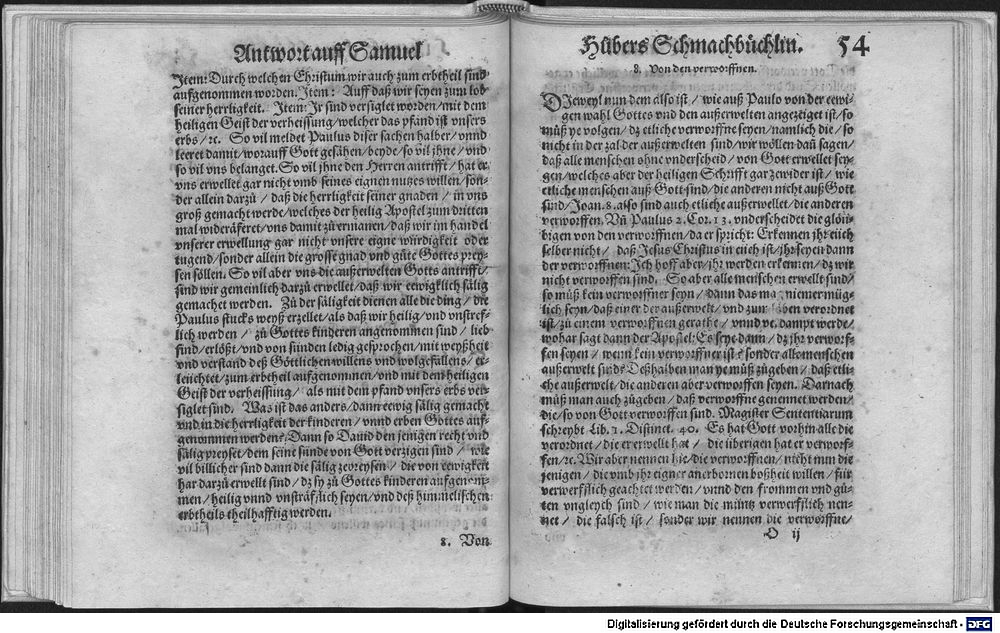 Antwort auff Samuel
Item: Durch welchen Christum wir auch zum erbtheil sind
aufgenommen worden. Item: Auff daß wir seyen zum lob
seiner herrligkeit. Item: Jr sind versiglet worden/ mit dem
heiligen Geist der verheissung/ welcher das pfand ist vnsers
erbs/ ꝛc. So vil meldet Paulus diser sachen halber/ vnnd
leeret damit/ worauff Gott gesähen/ beyde/ so vil jhne/ vnd
so vil vns belanget. So vil jhne den Herren antrifft/ hat er
vns erwellet gar nicht vmb seines eignen nutzes willen/ son-
der allein darzů/ daß die herrligkeit seiner gnaden/ in vns
groß gemacht werde/ welches der heilig Apostel zum dritten
mal wideräferet/ vns damit zů ermanen/ daß wir im handel
vnserer erwellung gar nicht vnsere eigne würdigkeit oder
tugend/ sonder allein die grosse gnad vnd güte Gottes prey-
sen söllen. So vil aber vns die außerwelten Gotts antrifft/
sind wir gemeinlich darzů erwellet/ daß wir eewigklich sälig
gemachet werden. Zů der säligkeit dienen alle die ding/ die
Paulus stucks weyß erzellet/ als daß wir heilig/ vnd vnstref-
lich werden/ zů Gottes kinderen angenommen sind/ lieb
sind/ erlößt/ vnd von sünden ledig gesprochen/ mit weyßheit
vnd verstand deß Göttlichen willens vnd wolgefallens/ er-
leüchtet/ zum erbtheil aufgenommen/ vnd mit dem heiligen
Geist der verheissung/ als mit dem pfand vnsers erbs ver-
siglet sind. Was ist das anders/ dann eewig sälig gemacht
vnd in die herrligkeit der kinderen/ vnnd erben Gottes auf-
genommen werden? Dann so Dauid den jenigen recht vnd
sälig preyset/ dem seine sünde von Gott verzigen sind/ wie
vil billicher sind dann die sälig ze preysen/ die von eewigkeit
har darzů erwellt sind/ dz sy zů Gottes kinderen aufgenom-
men/ heilig vnnd vnsträfflich seyen/ vnd deß himmelischen
erbtheils theilhafftig werden.
8. Von
Hůbers Schmachbüchlin. 54
8. Von den verworffnen.
DJeweyl nun dem also ist/ wie auß Paulo von der eewi-
gen wahl Gottes vnd den außerwelten angezeiget ist/ so
můß ye volgen/ dz etliche verworffne seyen/ namlich die/ so
nicht in der zal der außerwelten sind/ wir wöllen dañ sagen/
daß alle menschen ohne vnderscheid/ von Gott erwellet sey-
gen/ welches aber der heiligen Schrifft gar zewider ist/ wie
etliche menschen auß Gott sind/ die anderen nicht auß Gott
sind/ Joan. 8. also sind auch etliche außerwellet/ die anderen
verworffen. Vñ Paulus 2. Cor. 13. vnderscheidet die glöu-
bigen von den verworffnen/ da er spricht: Erkennen jhr eüch
selber nicht/ daß Jesus Christus in eüch ist/ jhr seyen dann
der verworffnen: Jch hoff aber/ jhr werden erkennen/ dz wir
nicht verworffen sind. So aber alle menschen erwellt sind/
so můß kein verworffner seyn/ dann das mag niemer müg-
lich seyn/ daß einer der außerwelt/ vnd zum leben verordnet
ist/ zů einem verworffnen gerathe/ vnnd verdampt werde/
wohar sagt dann der Apostel: Es seye dann/ dz jhr verworf-
fen seyen/ wenn kein verworffner ist/ sonder alle menschen
außerwelt sind? Deßhalben man ye můß zůgeben/ daß etli-
che außerwelt/ die anderen aber verworffen seyen. Darnach
můß man auch zůgeben/ daß verworffne genennet werden/
die/ so von Gott verworffen sind. Magister Sententiarum
schreybt Lib. 1. Distinct. 40. Es hat Gott vorhin alle die
verordnet/ die er erwellt hat/ die überigen hat er verworf-
fen/ ꝛc. Wir aber nennen hie/ die verworffnen/ nicht nun die
jenigen/ die vmb jhr eigner anerbornen boßheit willen/ für
verwerfflich geachtet werden/ vnnd den frommen vnd gů-
ten vngleych sind/ wie man die müntz verwerfflich nen-
net/ die falsch ist/ sonder wir nennen die verworffne/
O ij
Digitalisierung gefördert durch die Deutsche Forschungsgemeinschaft - DFG